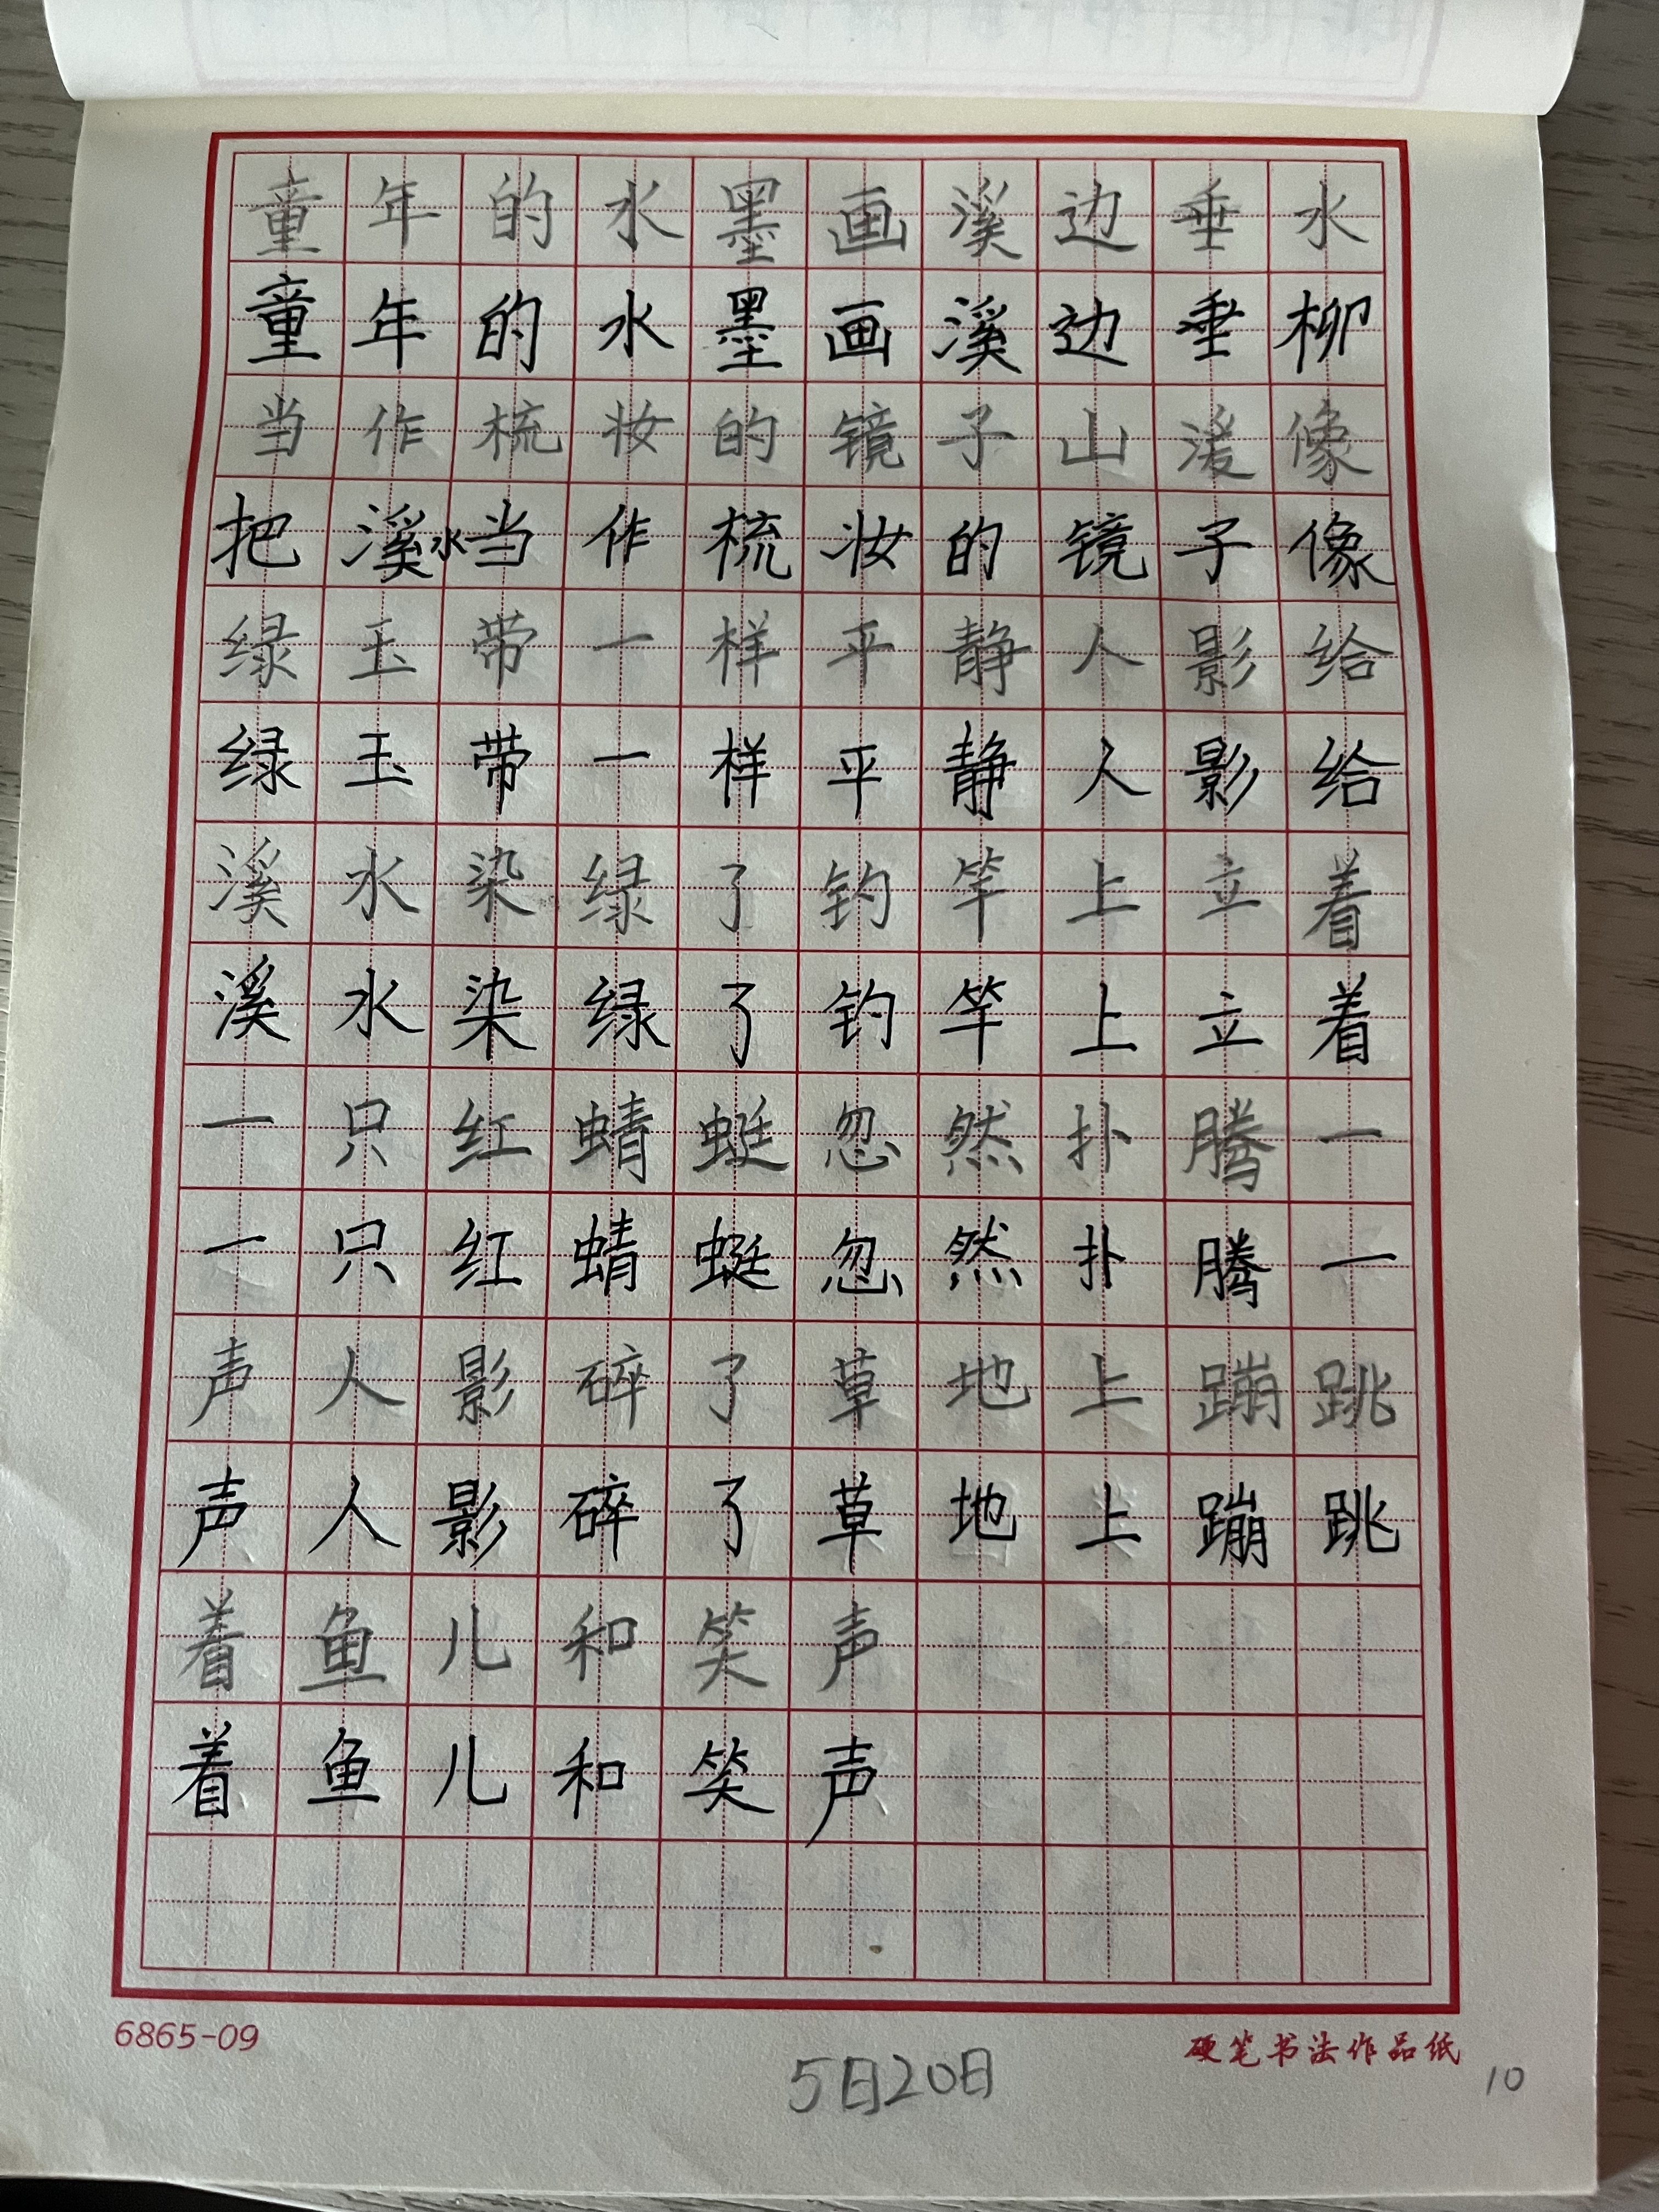 童年的水墨画溪边垂水
童年的水墨画溪边垂柳
当作梳妆的镜子山溪像
把溪水当作梳妆的镜子像
绿玉带一样平静人影给
绿玉带一样平静人影给
溪水染绿了钓竿上立着
溪水染绿了钓竿上立着
一只红蜻蜓忽然扑腾一
一只红蜻蜓忽然扑腾一
声人影碎了草地上蹦跳
声人影碎了草地上蹦跳
着鱼儿和笑声
着鱼儿和笑声
6865-09
硬笔书法作品纸
5日20日
10